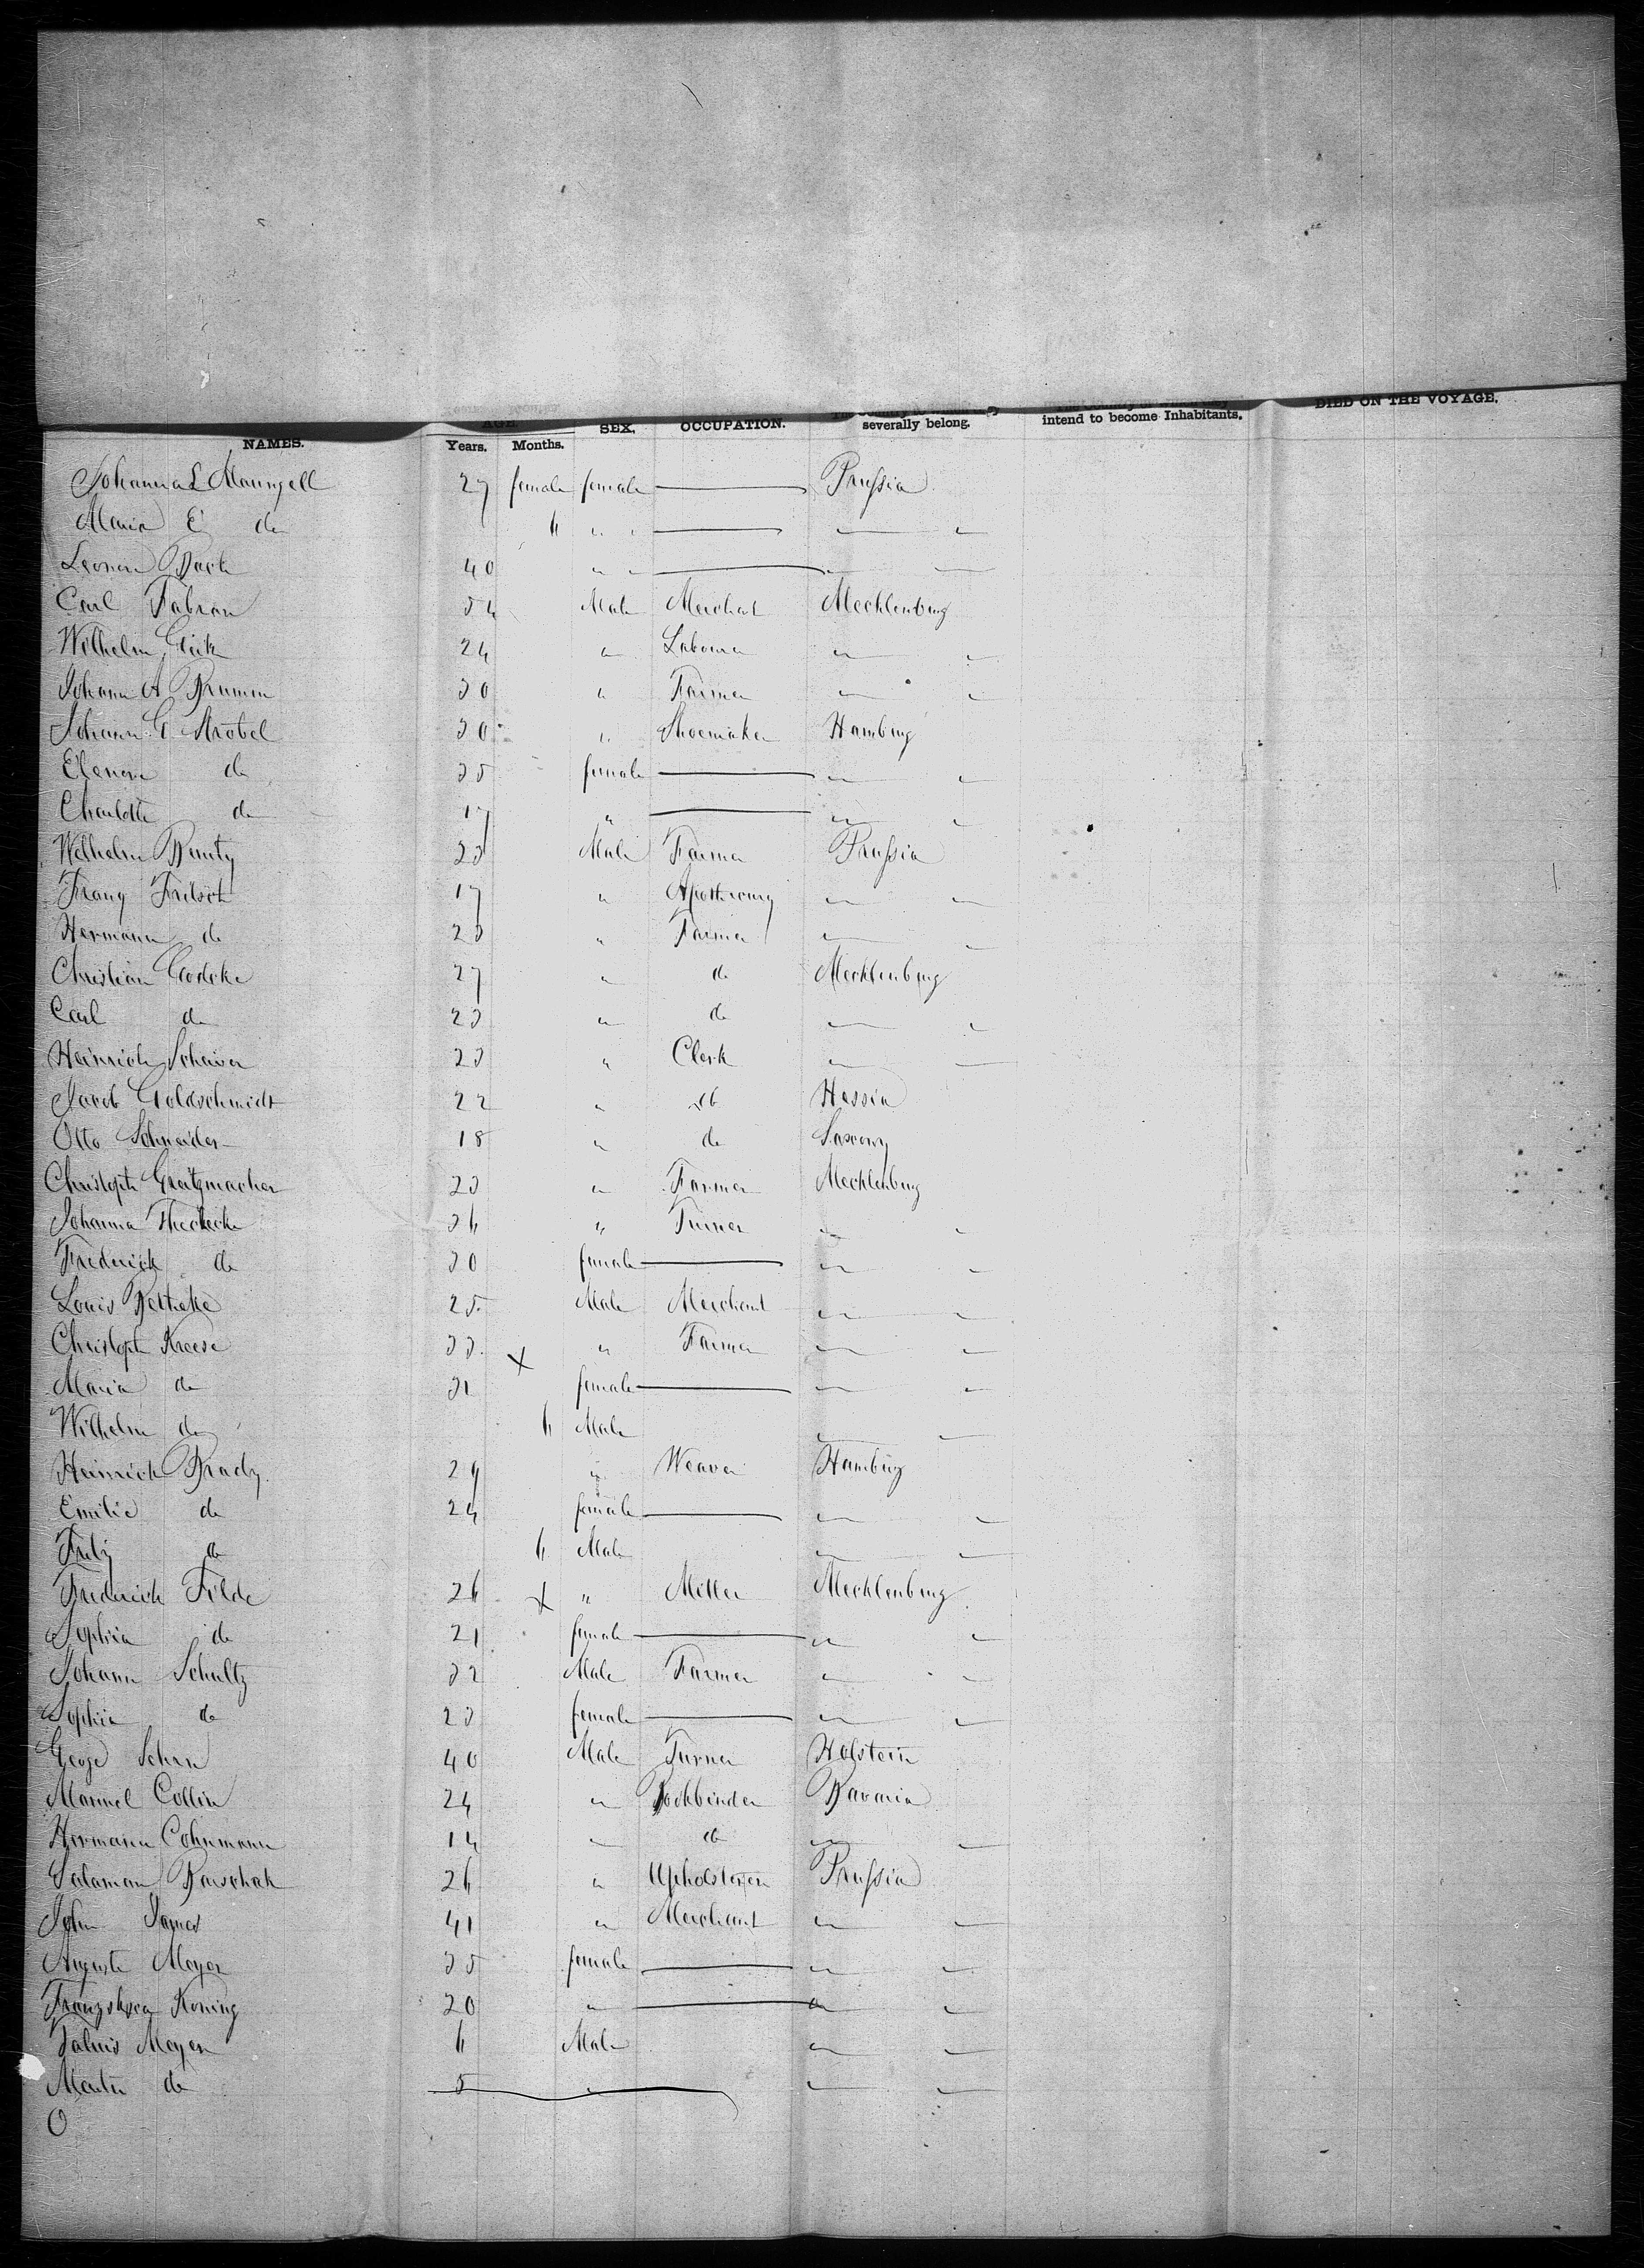 AGE.
NAMES. Years. Months. SEX. OCCUPATION. severally belong. intend to become Inhabitants. DIED ON THE VOYAGE.
Johanna L 27 female female Prussia
Maria E do 6 " "
40 " "
Carl Fabian 54 Male Merchant Mecklenburg
Wilhelm 24 " Labourer "
Johann A Brumm 30 " Farmer "
Johann G. Strobel 30 " Shoemaker Hamburg
Elenore do 35 female "
Charlotte do 17 " "
Wilhelm 23 Male Farmer Prussia
Franz Fritsch 17 " Apothecary "
Hermann do 23 " Farmer "
Christian 27 " do Mecklenburg
Carl do 23 " do "
Heinrich 23 " Clerk "
Jacob Goldschmidt 22 " do Hessia
Otto Schneider 18 " do Saxony
Christoph Gratzmacher 23 " Farmer Mecklenburg
Johanna 36 " Turner "
Frederick do 30 female "
Louis Betheke 25 Male Merchant "
Christoph Kreese 33 X " Farmer "
Maria do 31 female "
Wilhelm do 6 Male "
Heinrich Brady 29 " Weaver Hamburg
Emilie do 24 female "
Fritz do 6 Male "
Frederick Filde 26 X " Miller Mecklenburg
Sophia do 21 female "
Johann Schultz 32 Male Farmer "
Sophia do 23 female "
George 40 Male Turner Holstein
Manuel Collin 24 " Bookbinder Bavaria
Hermann Cohnmann 14 " do "
Salaman 26 " Upholsterer Prussia
John James 41 " Merchant "
Auguste Meyer 35 female "
Franziska Koning 20 " "
Julius Meyer 6 Male "
Martin do 5 " "